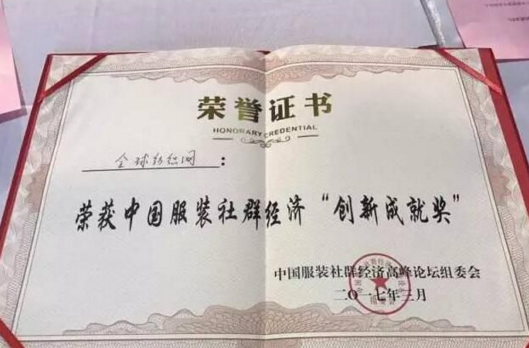 荣誉证书
HONORARY CREDENTIAL
全球纺织网：
荣获中国服装社群经济“创新成就奖”
中国服装社群经济高峰论坛组委会
二〇一七年三月